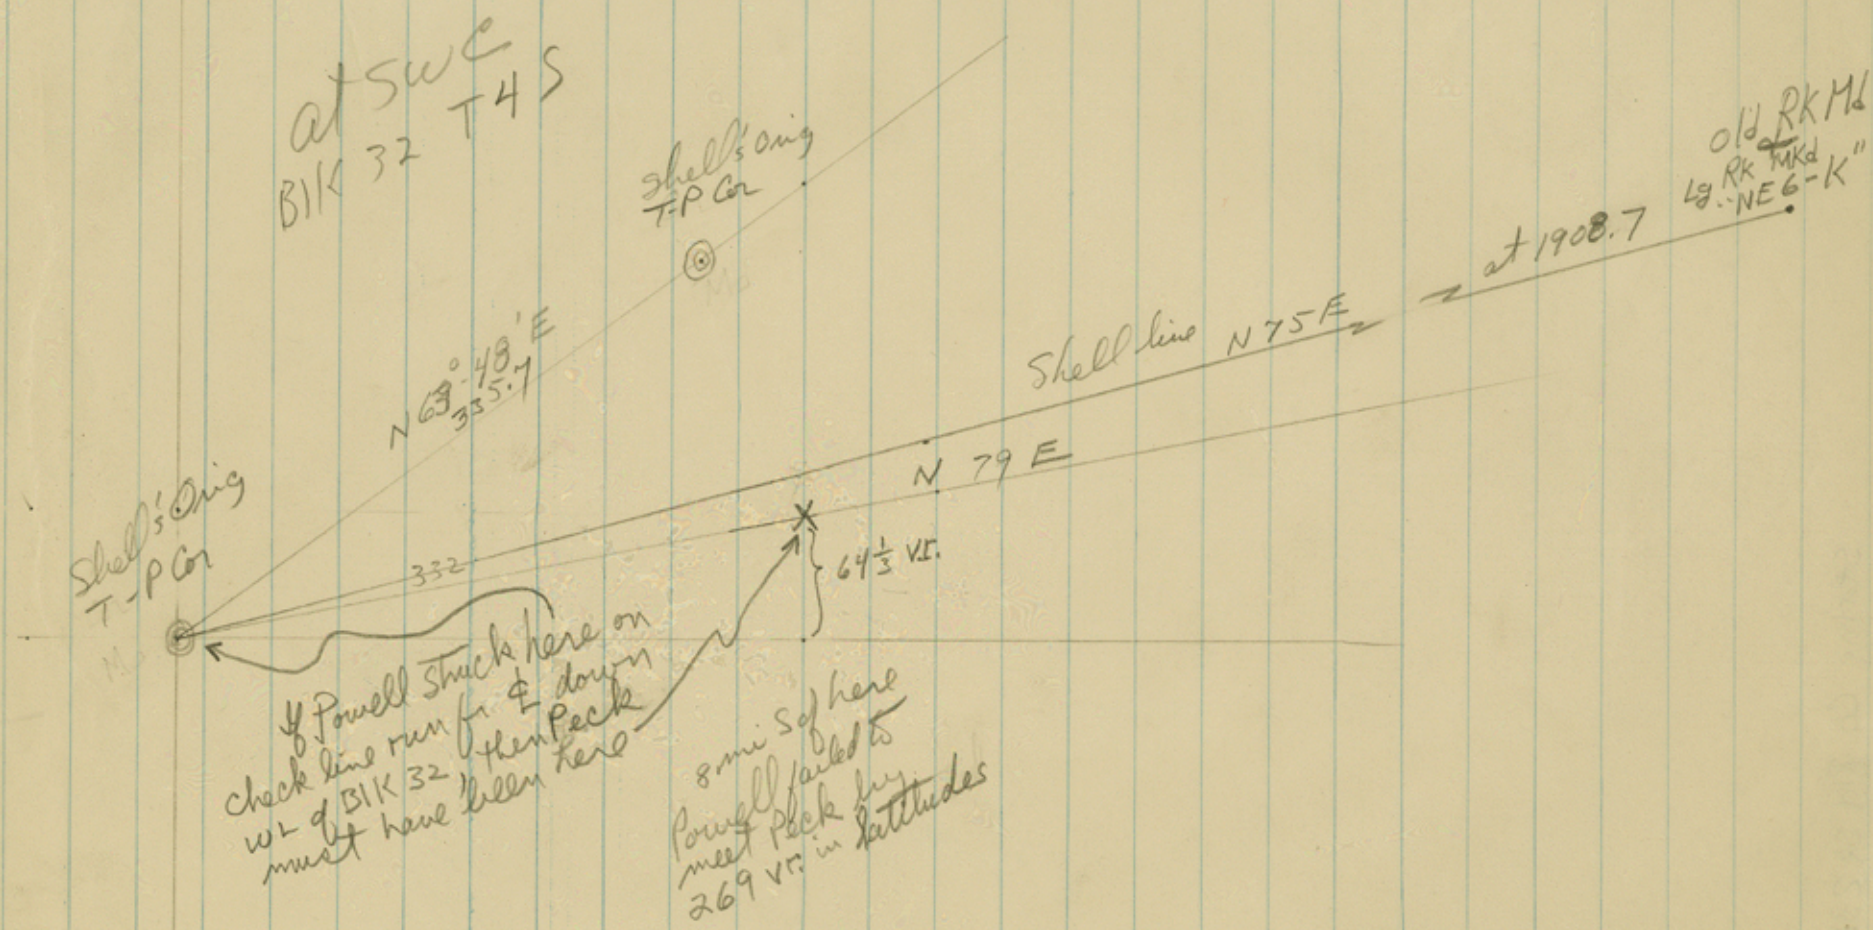 at SWC
Blk 32 T4S
Shell's Orig
T-P Cor
old RK Md
Lg RK MKd
"NE 6-K"
at 1908.7
Shell line N 75 E
N 63°-48' E
335.7
N 79 E
Shell's Orig
T-P Cor
332
64 1/3 vr.
If Powell Struck here on
check line run fr ¢ down
WL of Blk 32, then Peck
must have been here
8 mi S of here
Powell failed to
meet Peck by
269 vr. in latitudes